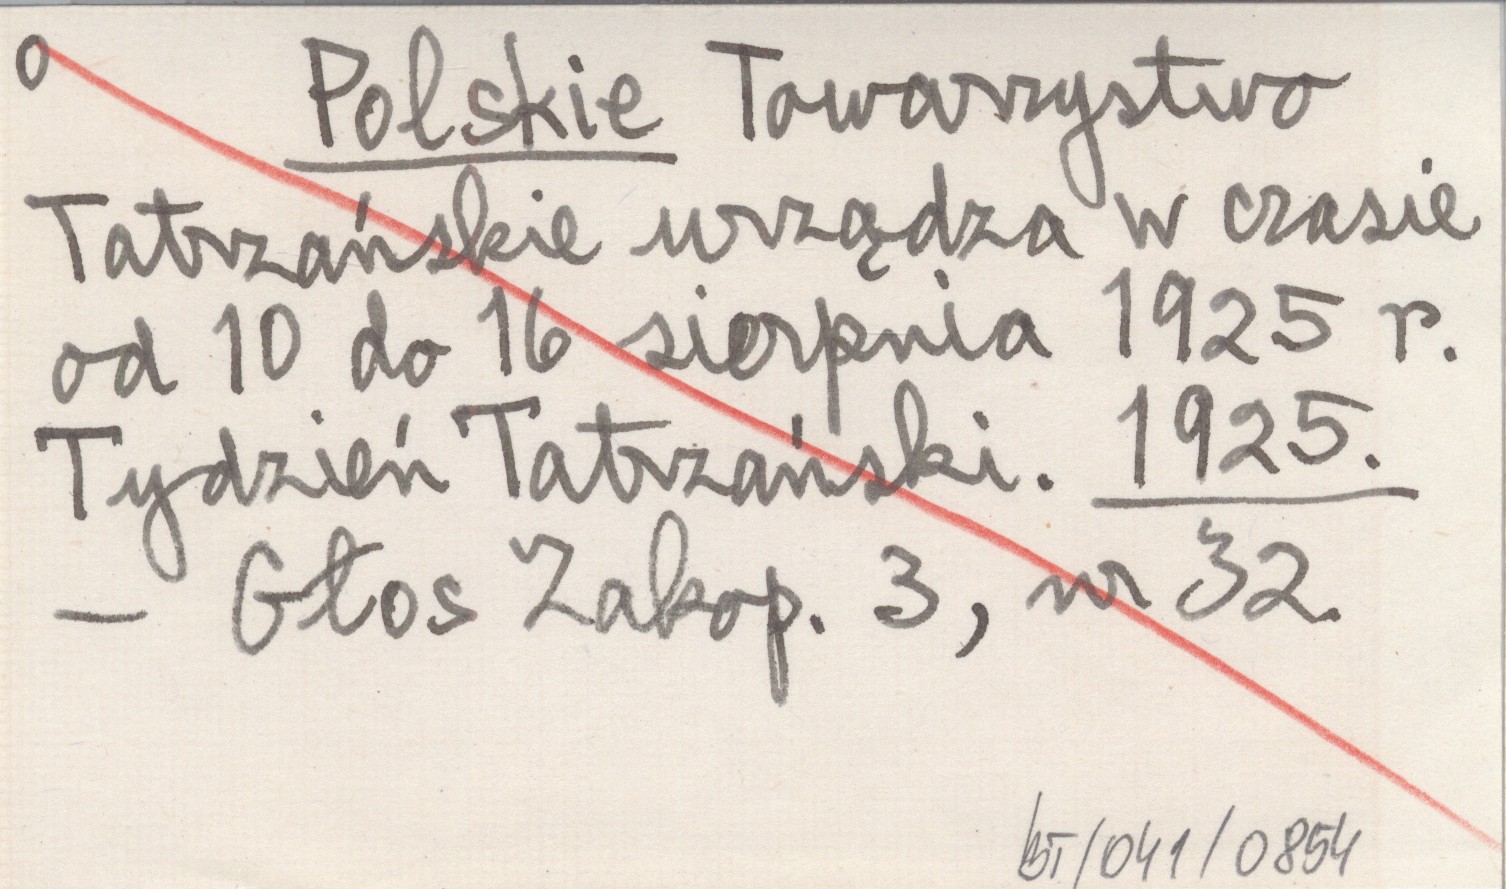 0 Polskie Towarzystwo
Tatrzańskie urządza w czasie
od 10 do 16 sierpnia 1925 r.
Tydzień Tatrzański. 1925.
— Głos Zakop. 3, nr 32.
BT/041/0854